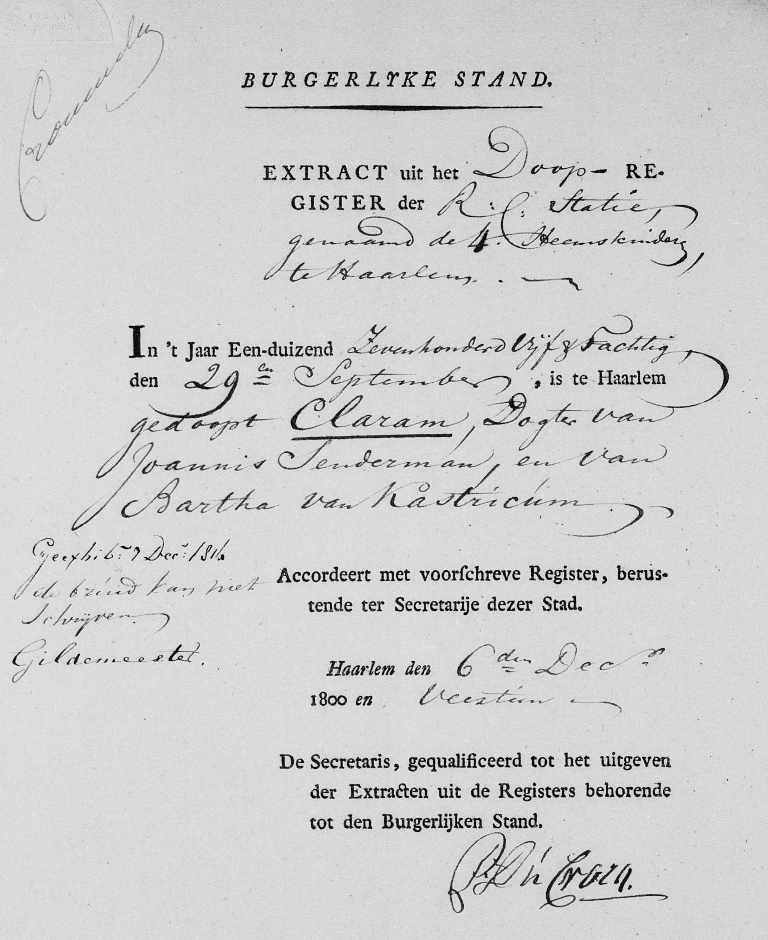 BURGERLYKE STAND.
EXTRACT uit het Doop- RE-
GISTER der R: C: Statie,
genaamd de 4. Heemskinderen,
te Haarlem.
In 't Jaar Een-duizend Zevenhonderd Vijf & Tachtig,
den 29en September, is te Haarlem
gedoopt Claram, Dogter van
Joannis Senderman, en van
Bartha van Kastricum.
Geexhibt 7 Decr:
de bruid kan niet
Schrijven
Gildemeester.
Accordeert met voorſchreve Register, berus-
tende ter Secretarije dezer Stad.
Haarlem den 6den Decr
1800 en Veertien
De Secretaris, gequalificeerd tot het uitgeven
der Extracten uit de Registers behorende
tot den Burgerlijken Stand.